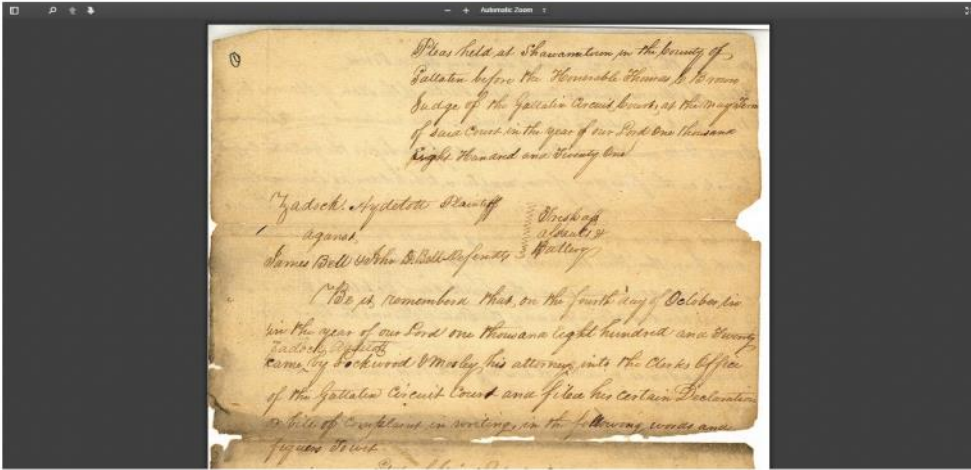 Automatic Zoom
Pleas held at Shawanetown in the County of
Gallatin before the Honorable Thomas C. Brown
Judge of the Gallatin Circuit Court, at the May Term
of said Court in the year of our Lord One thousand
Eight Hundred and Twenty One
Zadock Aydelott Plaintiff
against
James Bell & John D. Bell Defendts
Trespass
assault &
Battery
Be it rememberd that, on the fourth day of October, in
in the year of our Lord one thousand eight hundred and Twenty
Zadock
came by Lockwood & Mosley his attorneys into the Clerks Office
of the Gallatin Circuit Court and filed his certain Declaration
or bill of Complaint in writing, in the following words and
figures Towit